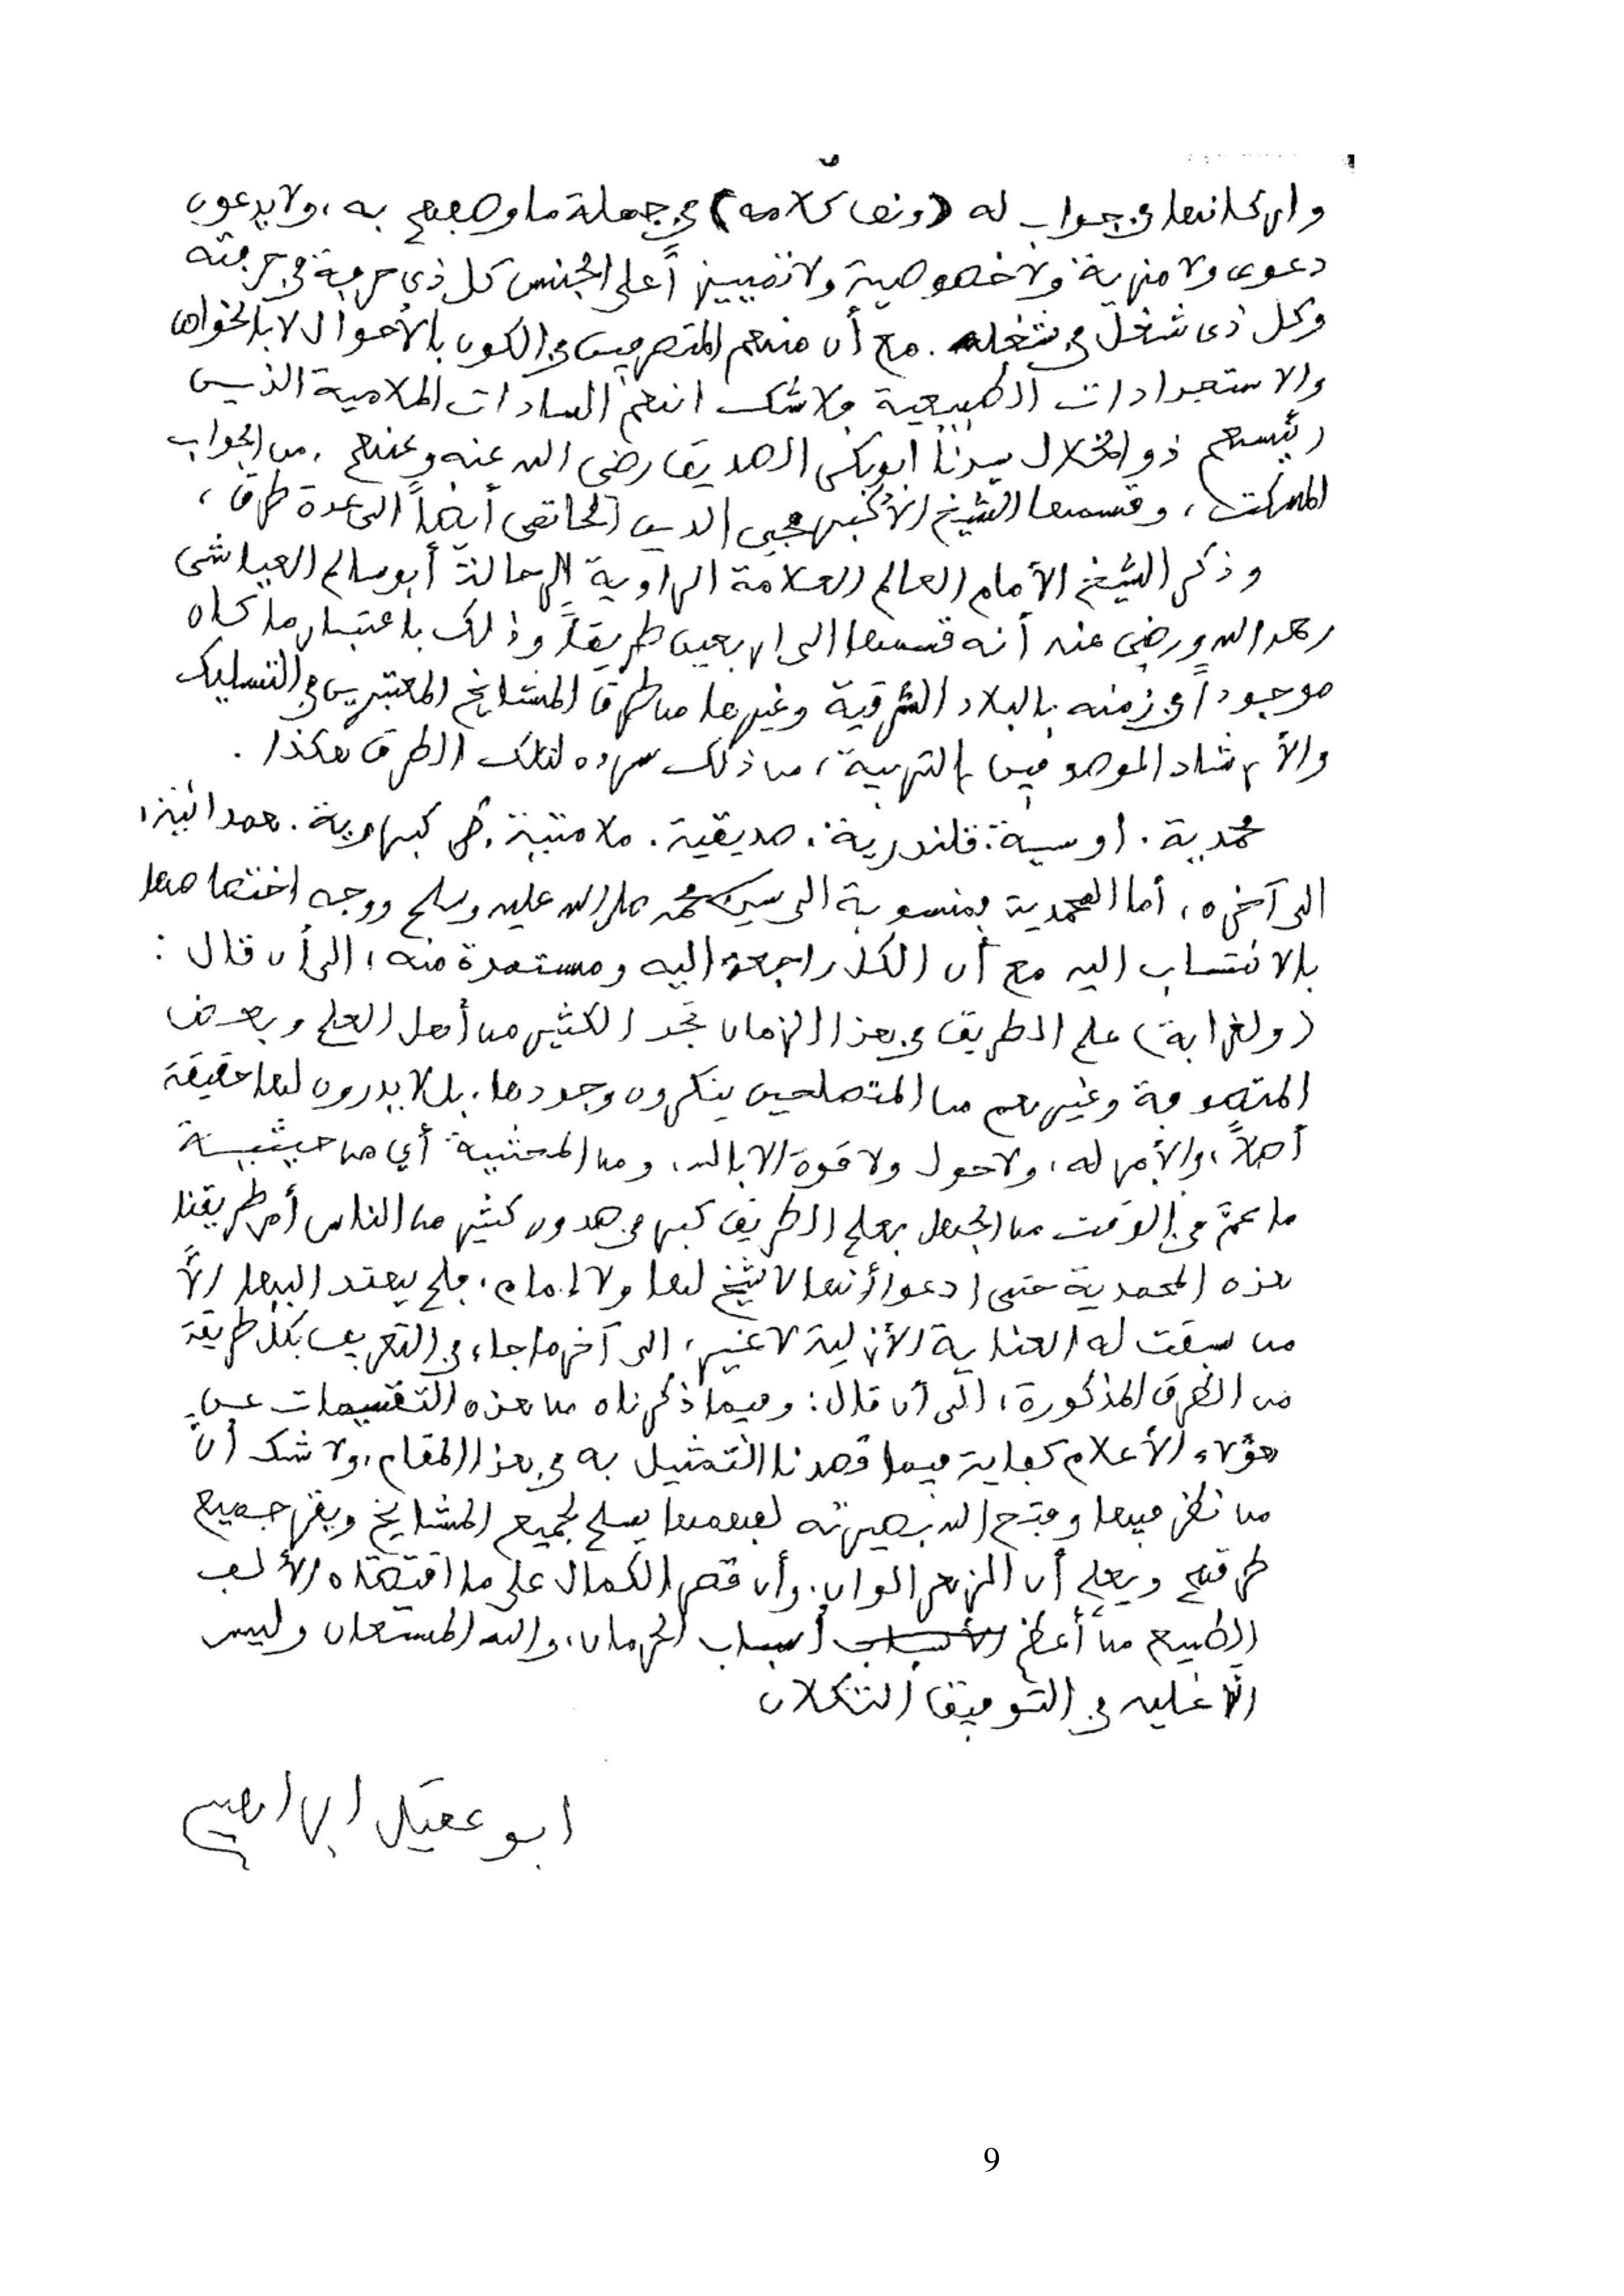 واركانها في جواب له (ونص كلامه) في جملة ما وصفهم به، ولا يدعون
دعوى ولا مزية ولا خصوصية ولا تمييزاً على الجنس كل ذي حرفة في حرفته
وكل ذي شغل في شغله. مع أن منهم المتصرفين في الكون بالأحوال لا بالخواص
والاستعدادات الطبيعية ولا شك انهم السادات الملامية الذين
رئيسهم ذو الخلال سيدنا ابوبكر الصديق رضي الله عنه وعنهم. من الجواب
المسكت، وقسمها الشيخ الأكبر محيي الدين الحاتمي أيضاً الى عدة طرق،
وذكر الشيخ الأمام العالم العلامة الراوية الرحالة أبو سالم العياشي
رحمه الله ورضي عنه أنه قسمها الى اربعين طريقاً وذلك باعتبار ما كان
موجوداً في زمنه بالبلاد الشرقية وغيرها من طرق المشايخ المعتبرين في التسليك
والأرشاد الموصوفين بالتربية، من ذلك سرده لتلك الطرق هكذا.
محمدية. اوسية. قلندرية. صديقية. ملامتية. كبروية. همدانية،
الى آخره، أما المحمدية فمنسوبة الى سيدنا محمد صلى الله عليه وسلم ووجه اختصاصها
بالانتساب اليه مع أن الكل راجعة اليه ومستمدة منه، الى أن قال :
(ولغرابة) علم الطريق في هذا الزمان تجد الكثير من أهل العلم وبعض
المتصوفة وغيرهم من المتصلحين ينكرون وجودها، بل لا يدرون لها حقيقة
أصلاً، والأمر له، ولا حول ولا قوة الا بالله، ومن الحيثية أي من حيثية
ما عمّ في الوقت من الجهل بعلم الطريق كبر في صدور كثير من الناس أمر طريقنا
هذه المحمدية حتى ادعوا أنها لا شيخ لها ولا امام، فلم يهتد اليها الاّ
من سبقت له العناية الأزلية لا غير، الى آخر ما جاء في التعريف بكل طريقة
من الطرق المذكورة، الى أن قال: وفيما ذكرناه من هذه التقسيمات عن
هؤلاء الأعلام كفاية فيما قصدنا التمثيل به في هذا المقام، ولا شك أنّ
من نظر فيها وفتح الله بصيرته لفهمها يسلم لجميع المشايخ ويقر جميع
طرقهم ويعلم أن الزهر الوان. وأن قصر الكمال على ما اقتضاه الألف
الطبيع من أعظم أسباب الحرمان، والله المستعان وليس
الاّ عليه في التوفيق التكلان
ابو عقيل ابراهيم
9